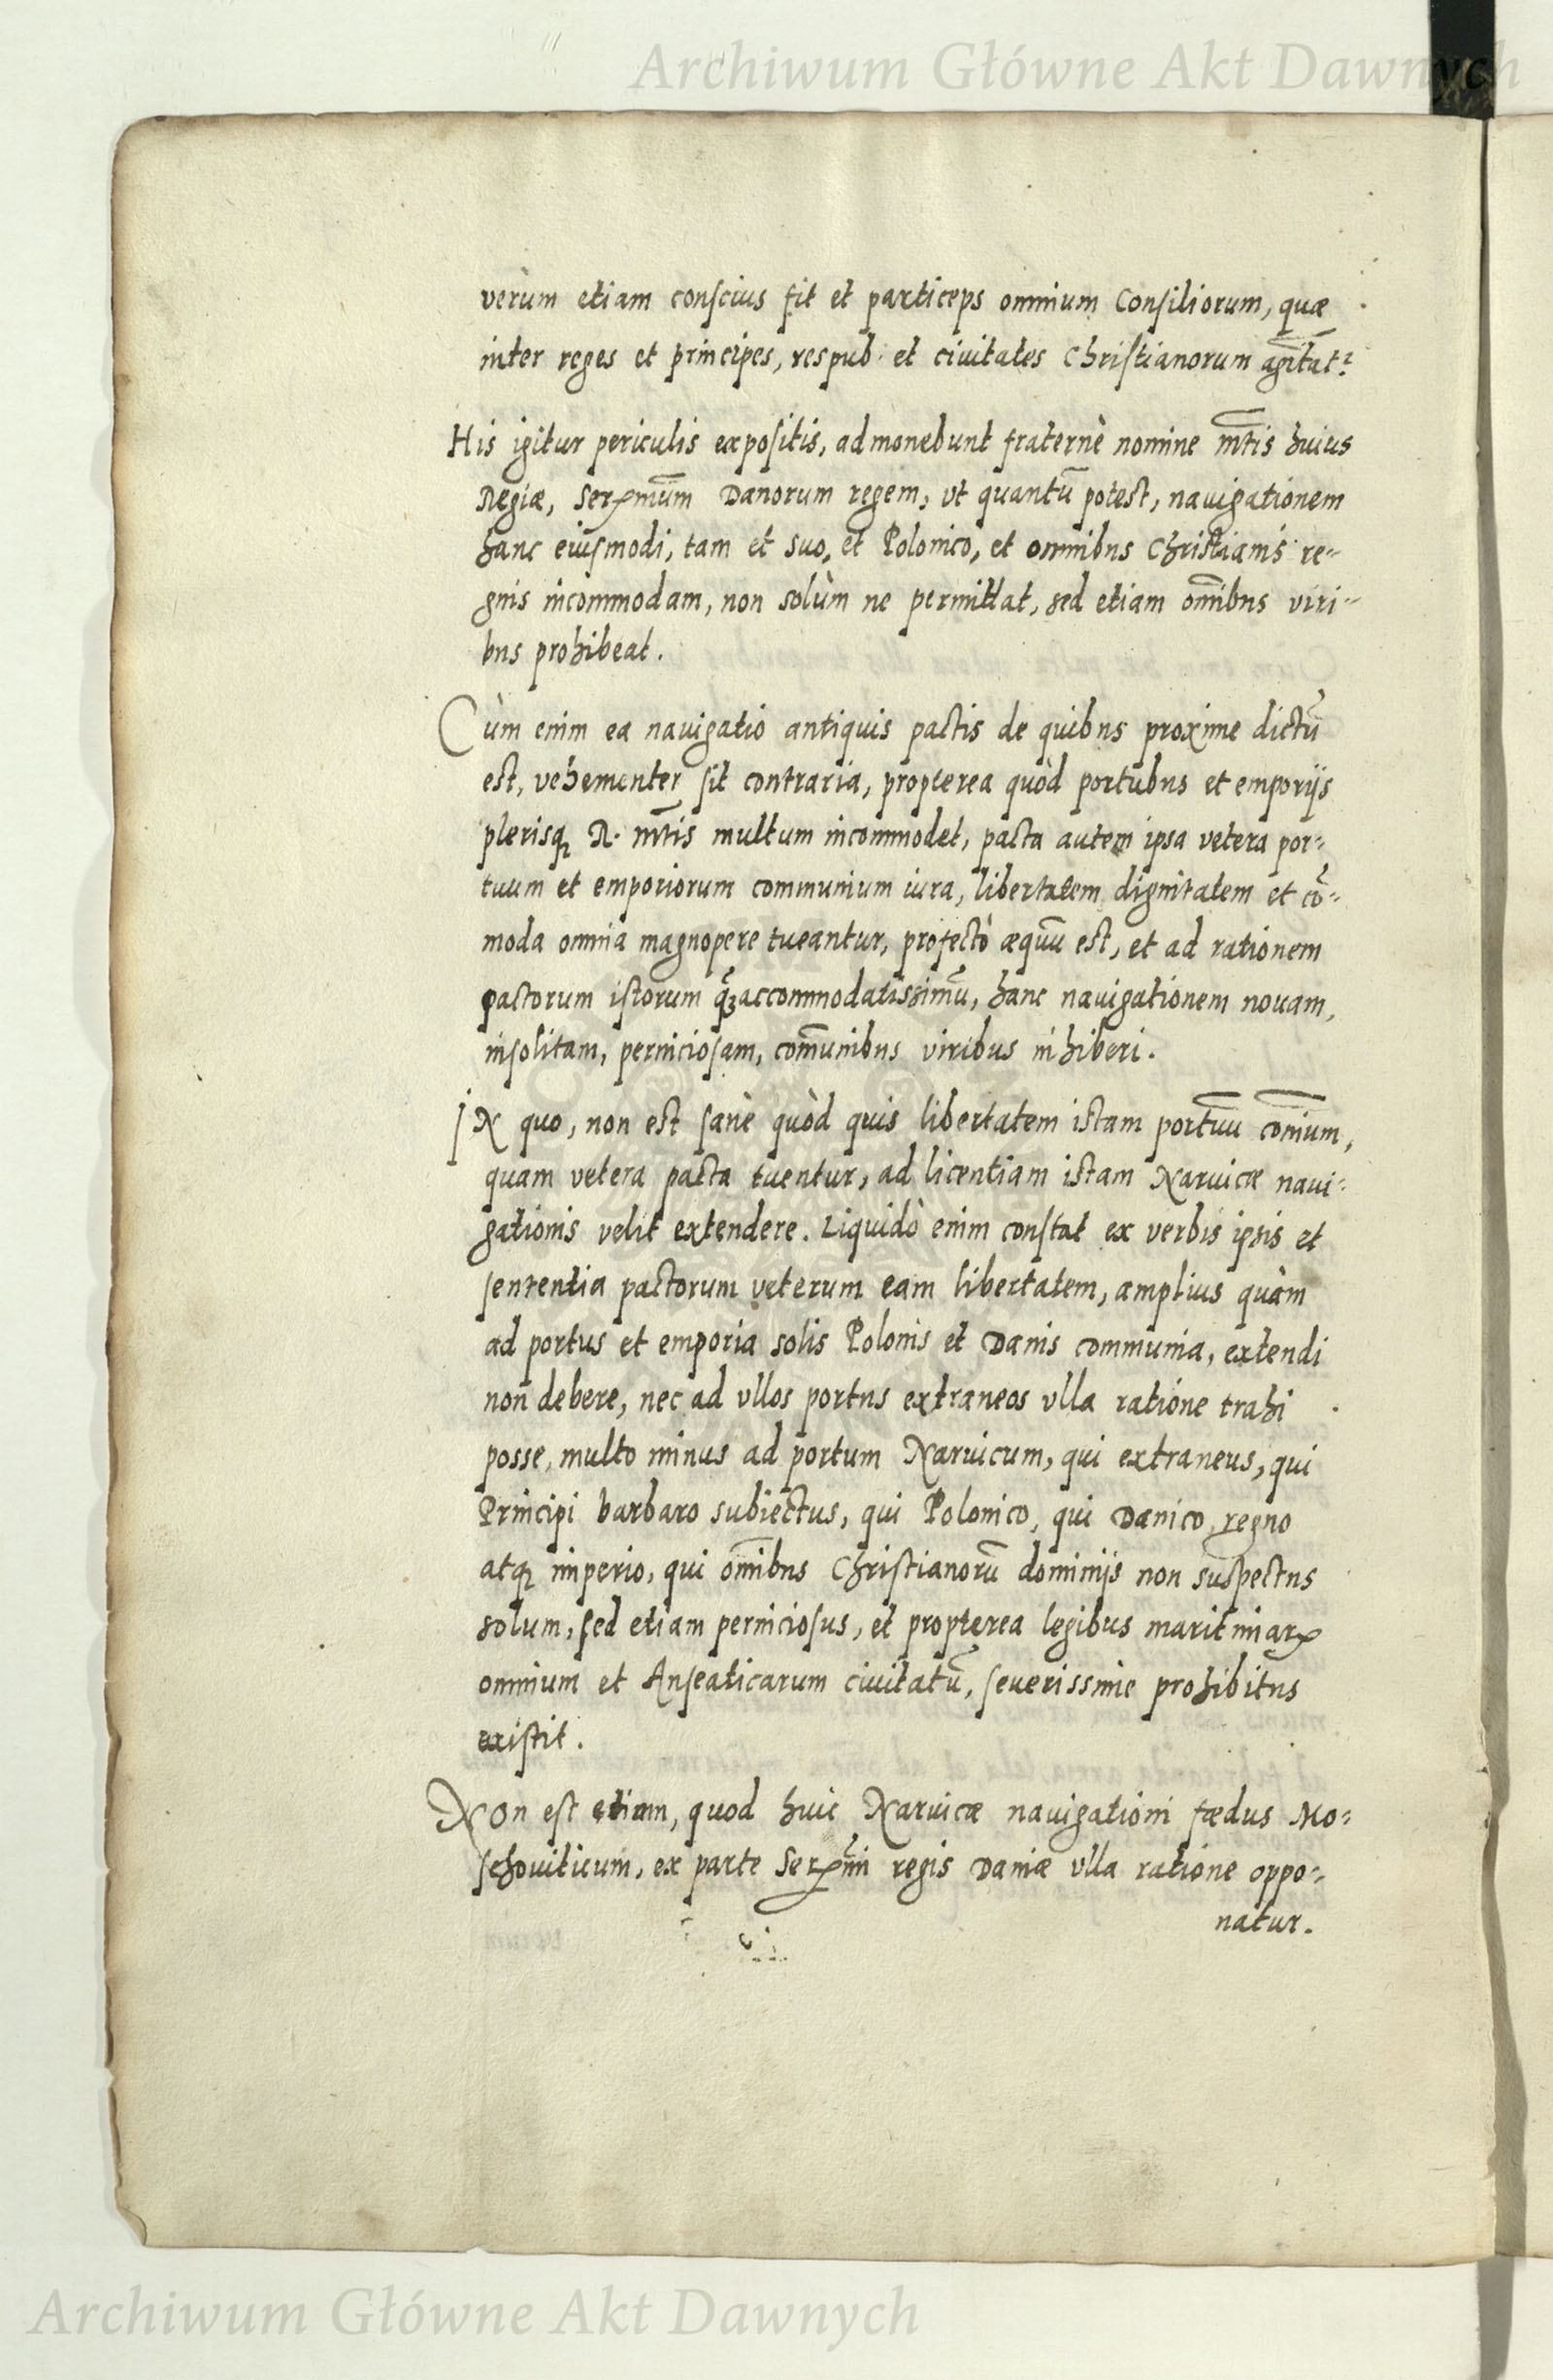 Archiwum Główne Akt Dawnych
verùm etiam conscius fit et particeps omnium Consiliorum, quæ
inter reges et principes, respub: et civitates Christianorum agitãt².
His igitur periculis expositis, admonebunt fraternè nomine m̃tis huius
Regiæ, Serꝝmũm Danorum regem, vt quantũ potest, navigationem
hanc eiusmodi, tam et suo, et Polonico, et omnibus Christianis re-
gnis incommodam, non solùm ne permittat, sed etiam om̃ibus viri-
bus prohibeat.
Cùm enim ea navigatio antiquis pactis de quibus proxime dictũ
est, vehementer sit contraria, propterea quòd portubus et emporijs
plerisqꝫ R. m̃tis multum incommodet, pacta autem ipsa vetera por-
tuum et emporiorum communium iura, libertatem dignitatem et cõ-
moda omnia magnopere tueantur, profectò æquũ est, et ad rationem
pactorum istorum q̃ꝫ accommodatissimũ, hanc navigationem nouam,
insolitam, perniciosam, com̃unibus viribus inhiberi.
IN quo, non est sanè quòd quis libertatem istam portũu com̃ium,
quam vetera pacta tuentur, ad licentiam istam Narvicæ navi-
gationis velit extendere. Liquidò enim constat ex verbis ipsis et
sententia pactorum veterum eam libertatem, amplius quàm
ad portus et emporia solis Polonis et Danis communia, extendi
non debere, nec ad vllos portus extraneos vlla ratione trahi
posse, multo minus ad portum Narvicum, qui extraneus, qui
Principi barbaro subiectus, qui Polonico, qui Danico regno
atqꝫ imperio, qui om̃ibus Christianorũ dominijs non suspectus
solum, sed etiam perniciosus, et propterea legibus maritimiarꝝ
omnium et Anseaticarum civitatũ, seuerissime prohibitus
existit.
NOn est etiam, quod huic Narvicæ navigationi fædus Mo-
schouiticum, ex parte Serꝝm̃i regis Daniæ vlla ratione oppo-
natur.
Archiwum Główne Akt Dawnych